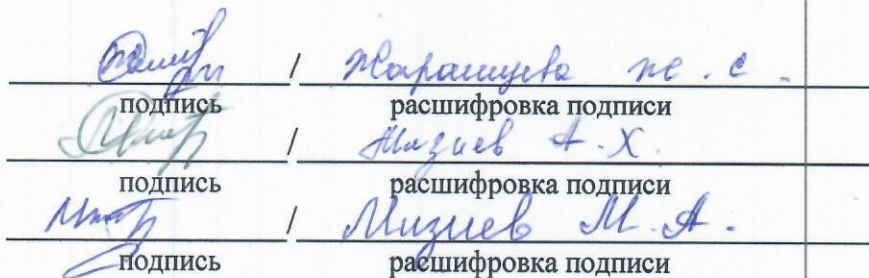 / Жарашуева Ж. С.
подпись расшифровка подписи
/ Мизиев А. Х.
подпись расшифровка подписи
/ Мизиев М. А.
подпись расшифровка подписи